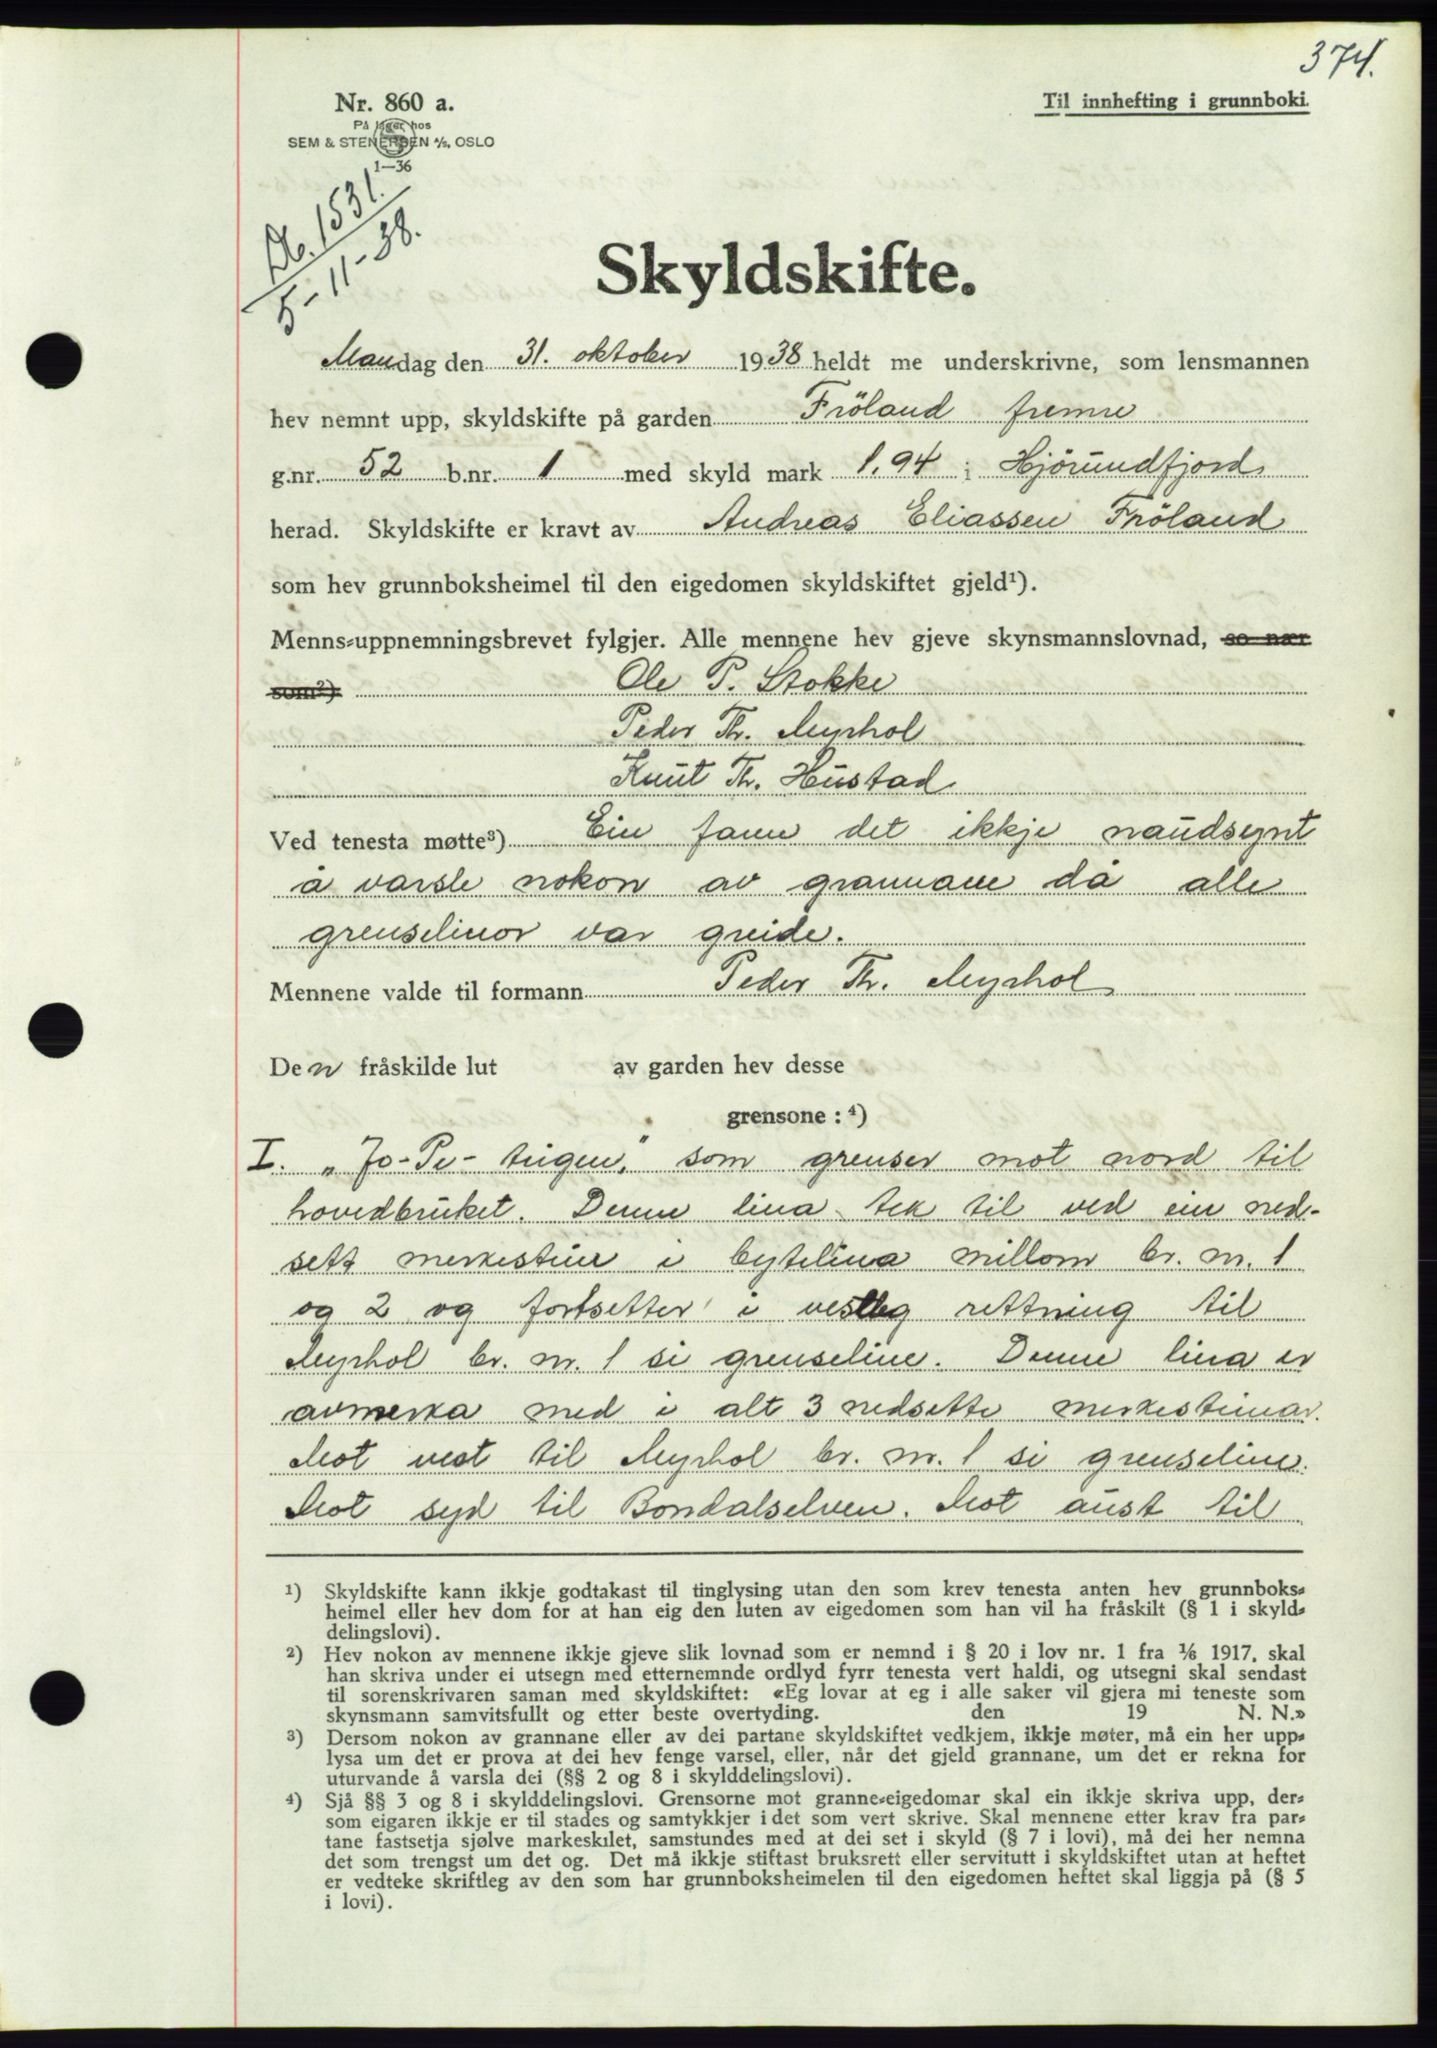 374.
Nr. 860 a.
På lager hos
SEM & STENERSEN A/S, OSLO
1—36
Til innhefting i grunnboki.
Db. 1531.
5-11-38.
Skyldskifte.
Mandag den 31. oktober 1938 heldt me underskrivne, som lensmannen
hev nemnt upp, skyldskifte på garden Fröland fremre
g.nr. 52 b.nr. 1 med skyld mark 1,94 i Hjörundfjord
herad. Skyldskifte er kravt av Andreas Eliassen Fröland
som hev grunnboksheimel til den eigedomen skyldskiftet gjeld¹).
Menns-uppnemningsbrevet fylgjer. Alle mennene hev gjeve skynsmannslovnad, so nær
som²) Ole P. Stokke
Peder Th. Myrhol
Knut Th. Hustad
Ved tenesta møtte³) Ein fann det ikkje naudsynt
å varsle nokon av grannane då alle
grenselinor var greide.
Mennene valde til formann Peder Th. Myrhol
Den fråskilde lut av garden hev desse
grensone : ⁴)
I. „Jo-Pe-teigen," som grenser mot nord til
hovedbruket. Denne lina tek til ved ein ned-
sett merkestein i bytelina millom br. nr. 1
og 2 og fortsetter i vestleg rettning til
Myrhol br. nr. 1 si grenseline. Denne lina er
avmerka med i alt 3 nedsette merkesteinar.
Mot vest til Myrhol br. nr. 1 si grenseline.
Mot syd til Bondalselven. Mot aust til
¹) Skyldskifte kann ikkje godtakast til tinglysing utan den som krev tenesta anten hev grunnboks-
heimel eller hev dom for at han eig den luten av eigedomen som han vil ha fråskilt (§ 1 i skyld-
delingslovi).
²) Hev nokon av mennene ikkje gjeve slik lovnad som er nemnd i § 20 i lov nr. 1 fra 1/6 1917, skal
han skriva under ei utsegn med etternemnde ordlyd fyrr tenesta vert haldi, og utsegni skal sendast
til sorenskrivaren saman med skyldskiftet: «Eg lovar at eg i alle saker vil gjera mi teneste som
skynsmann samvitsfullt og etter beste overtyding. den 19 N. N.»
³) Dersom nokon av grannane eller av dei partane skyldskiftet vedkjem, ikkje møter, må ein her upp-
lysa um det er prova at dei hev fenge varsel, eller, når det gjeld grannane, um det er rekna for
uturvande å varsla dei (§§ 2 og 8 i skylddelingslovi).
⁴) Sjå §§ 3 og 8 i skylddelingslovi. Grensorne mot granne-eigedomar skal ein ikkje skriva upp, der-
som eigaren ikkje er til stades og samtykkjer i det som vert skrive. Skal mennene etter krav fra par-
tane fastsetja sjølve markeskilet, samstundes med at dei set i skyld (§ 7 i lovi), må dei her nemna
det som trengst um det og. Det må ikkje stiftast bruksrett eller servitutt i skyldskiftet utan at heftet
er vedteke skriftleg av den som har grunnboksheimelen til den eigedomen heftet skal liggja på (§ 5
i lovi).